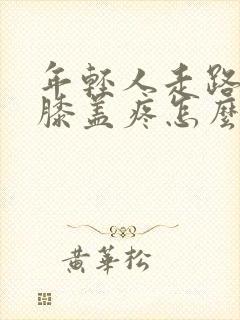 年輕人走路
膝蓋疼怎麼
黃華松